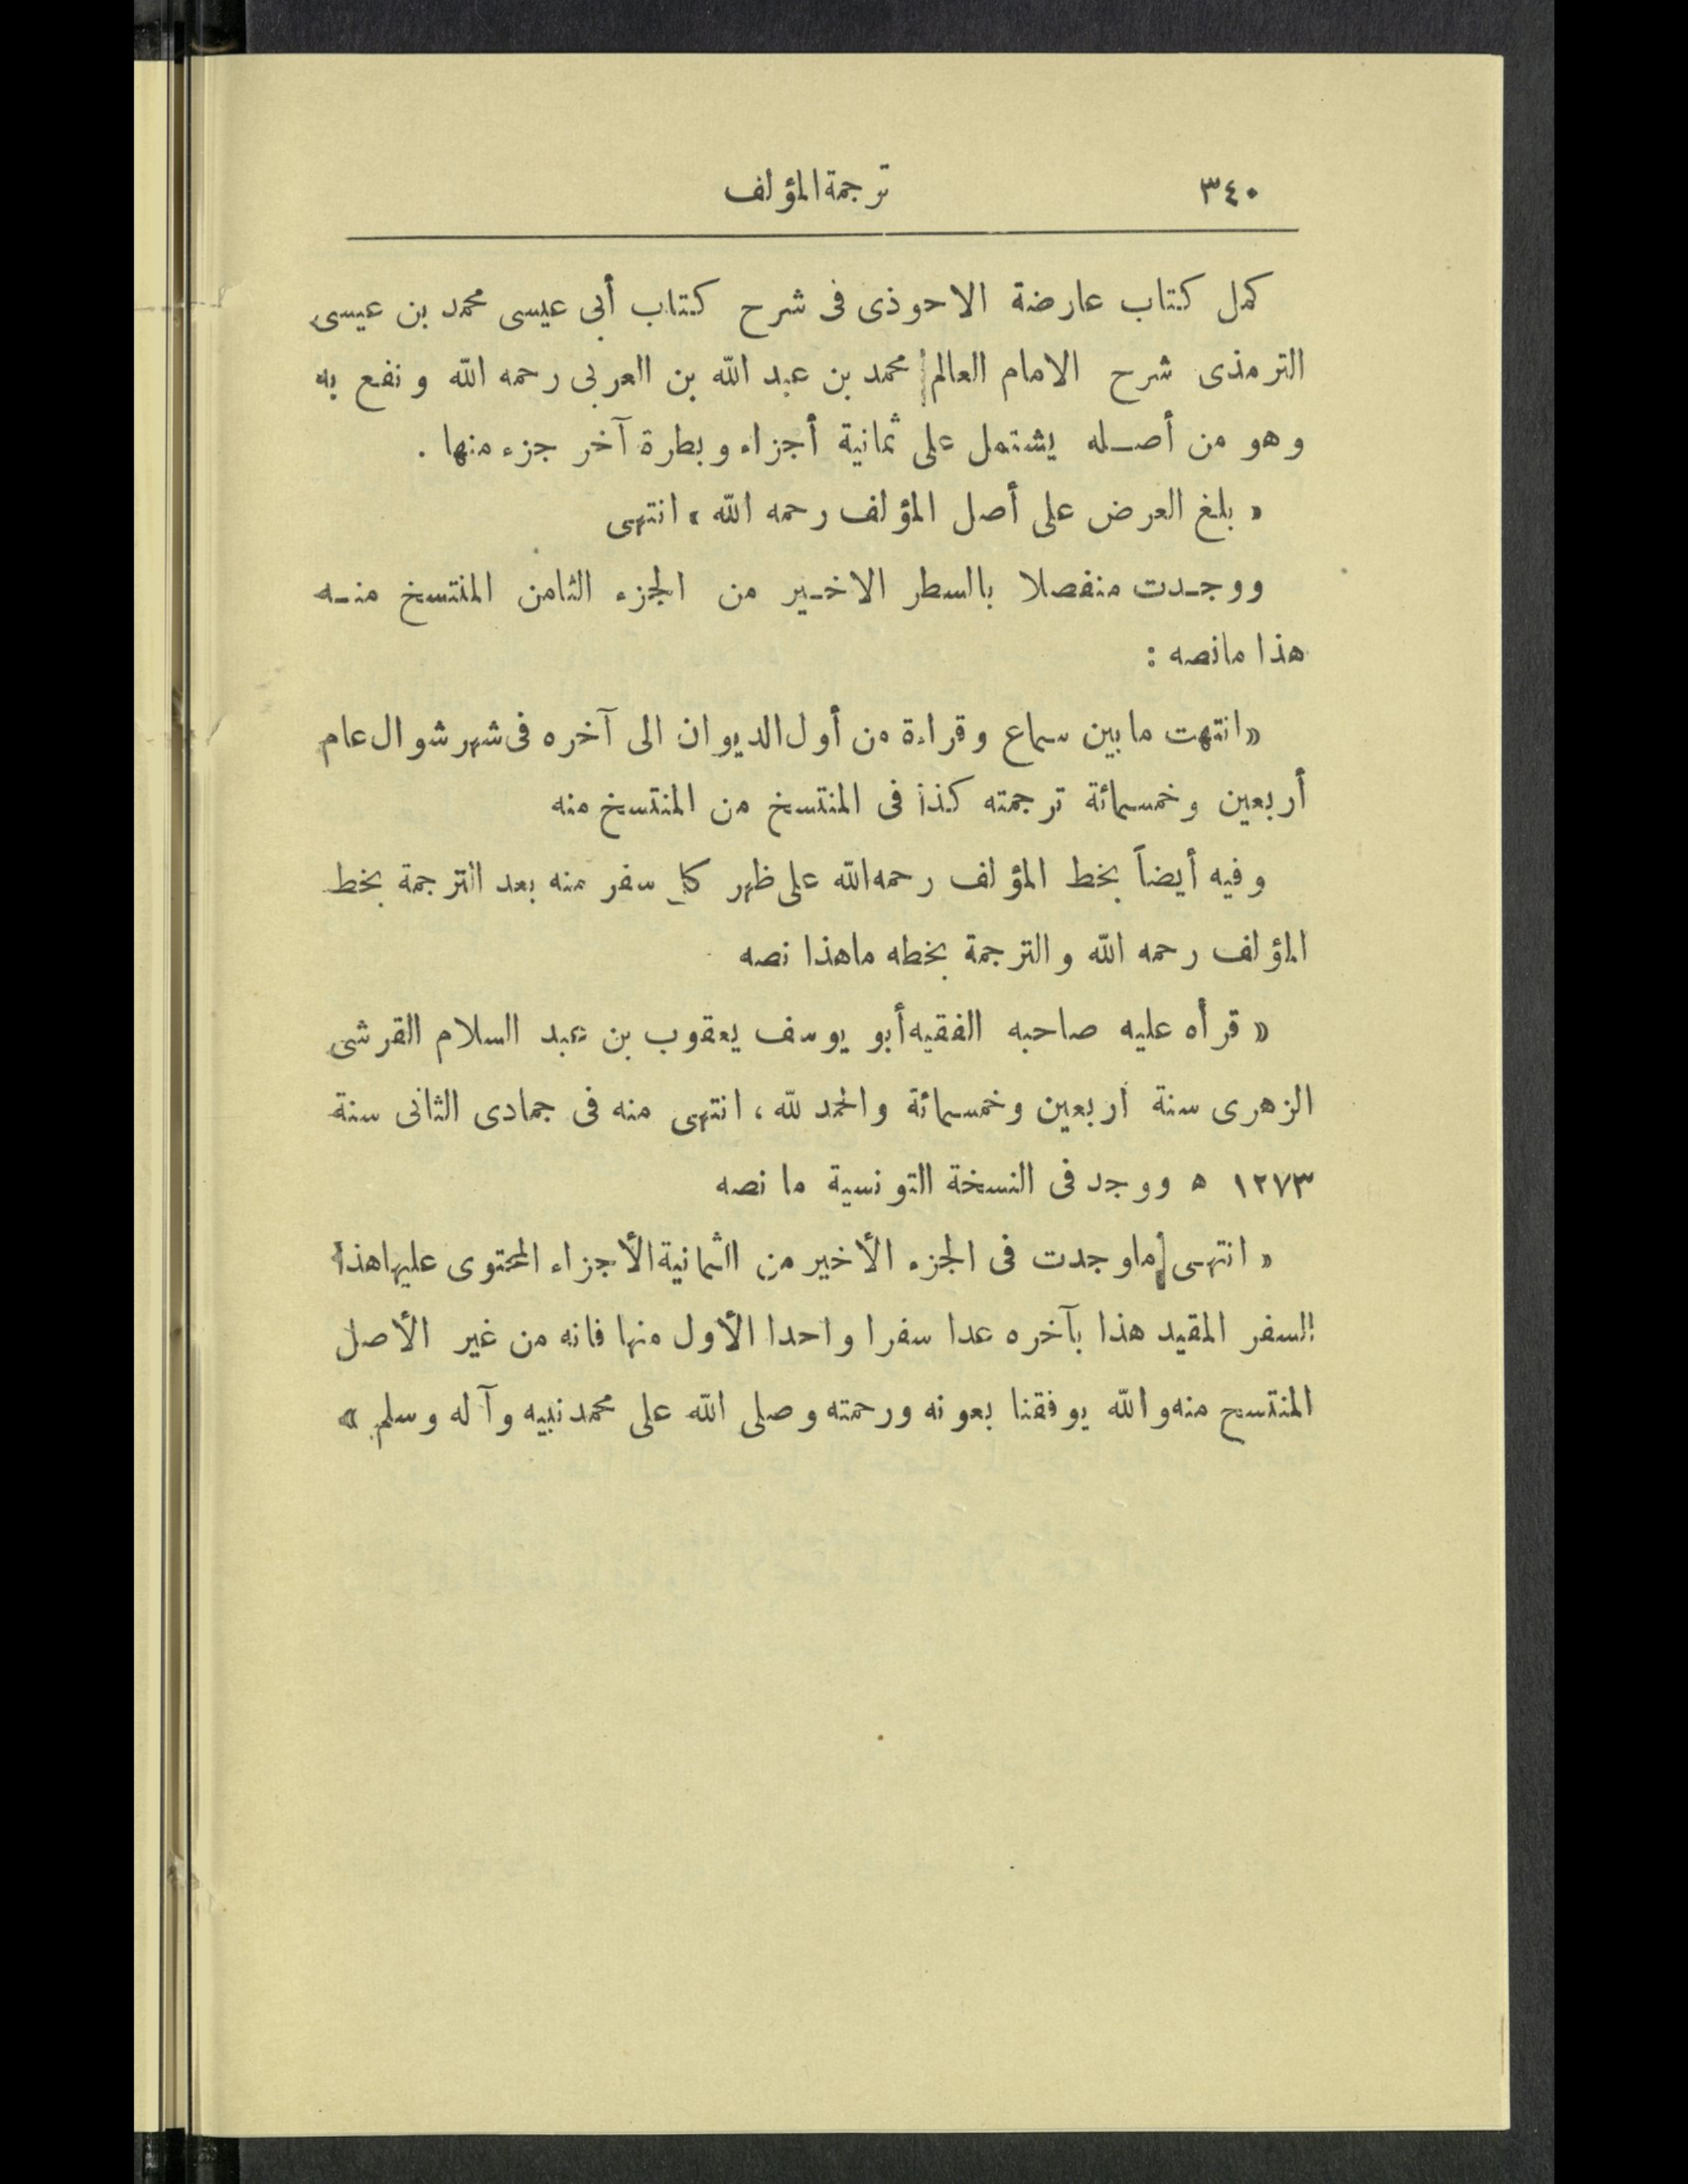 ٣٤٠ ترجمة المؤلف
كمل كتاب عارضة الاحوذى فى شرح كتاب أبى عيسى محمد بن عيسى
الترمذى شرح الامام العالم محمد بن عبد الله بن العربى رحمه الله ونفع به
وهو من أصله يشتمل على ثمانية أجزاء وبطرة آخر جزء منها .
« بلغ العرض على أصل المؤلف رحمه الله » انتهى
ووجدت منفصلا بالسطر الاخير من الجزء الثامن المنتسخ منه
هذا مانصه :
«انتهت مابين سماع وقراءة من أول الديوان الى آخره فى شهر شوال عام
أربعين وخمسمائة ترجمته كذا فى المنتسخ من المنتسخ منه
وفيه أيضاً بخط المؤلف رحمه الله على ظهر كل سفر منه بعد الترجمة بخط
المؤلف رحمه الله والترجمة بخطه ماهذا نصه
« قرأه عليه صاحبه الفقيه أبو يوسف يعقوب بن عبد السلام القرشى
الزهرى سنة أربعين وخمسمائة والحمد لله ، انتهى منه فى جمادى الثانى سنة
١٢٧٣ ه ووجد فى النسخة التونسية ما نصه
« انتهى ماوجدت فى الجزء الأخير من الثمانية الأجزاء المحتوى عليها هذا
السفر المقيد هذا بآخره عدا سفرا واحدا الأول منها فانه من غير الأصل
المنتسح منه والله يوفقنا بعونه ورحمته وصلى الله على محمد نبيه وآله وسلم »